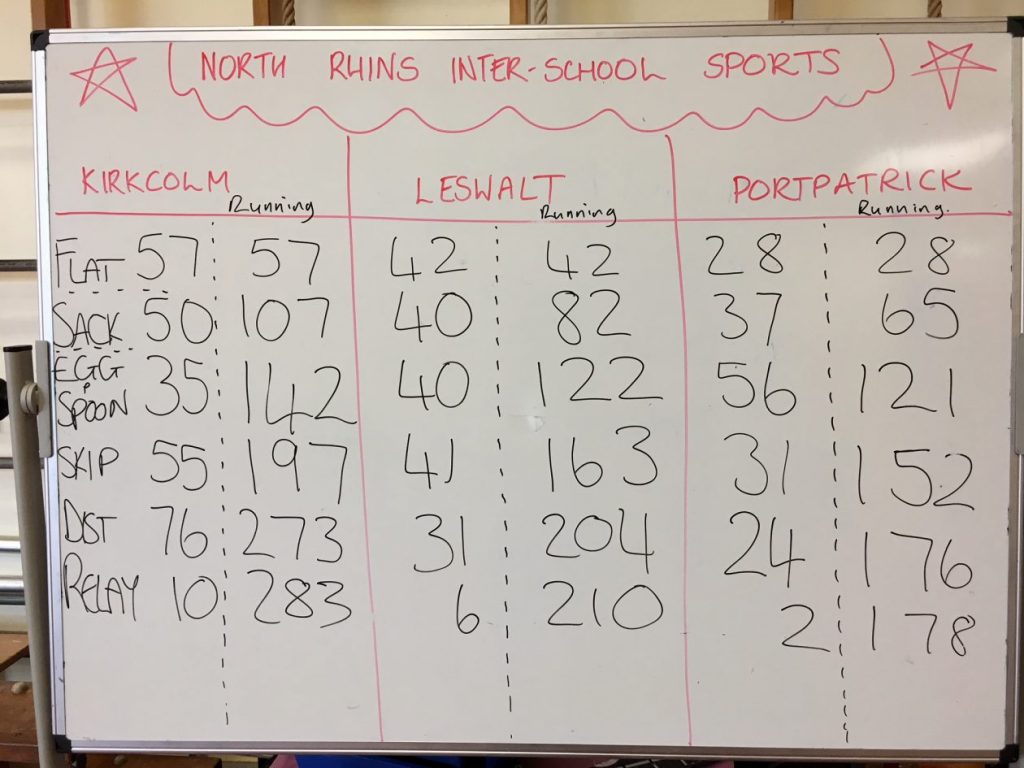 NORTH RHINS INTER-SCHOOL SPORTS
KIRKCOLM LESWALT PORTPATRICK
Running Running Running.
FLAT 57 57 42 42 28 28
SACK 50 107 40 82 37 65
EGG & SPOON 35 142 40 122 56 121
SKIP 55 197 41 163 31 152
DIST 76 273 31 204 24 176
RELAY 10 283 6 210 2 178